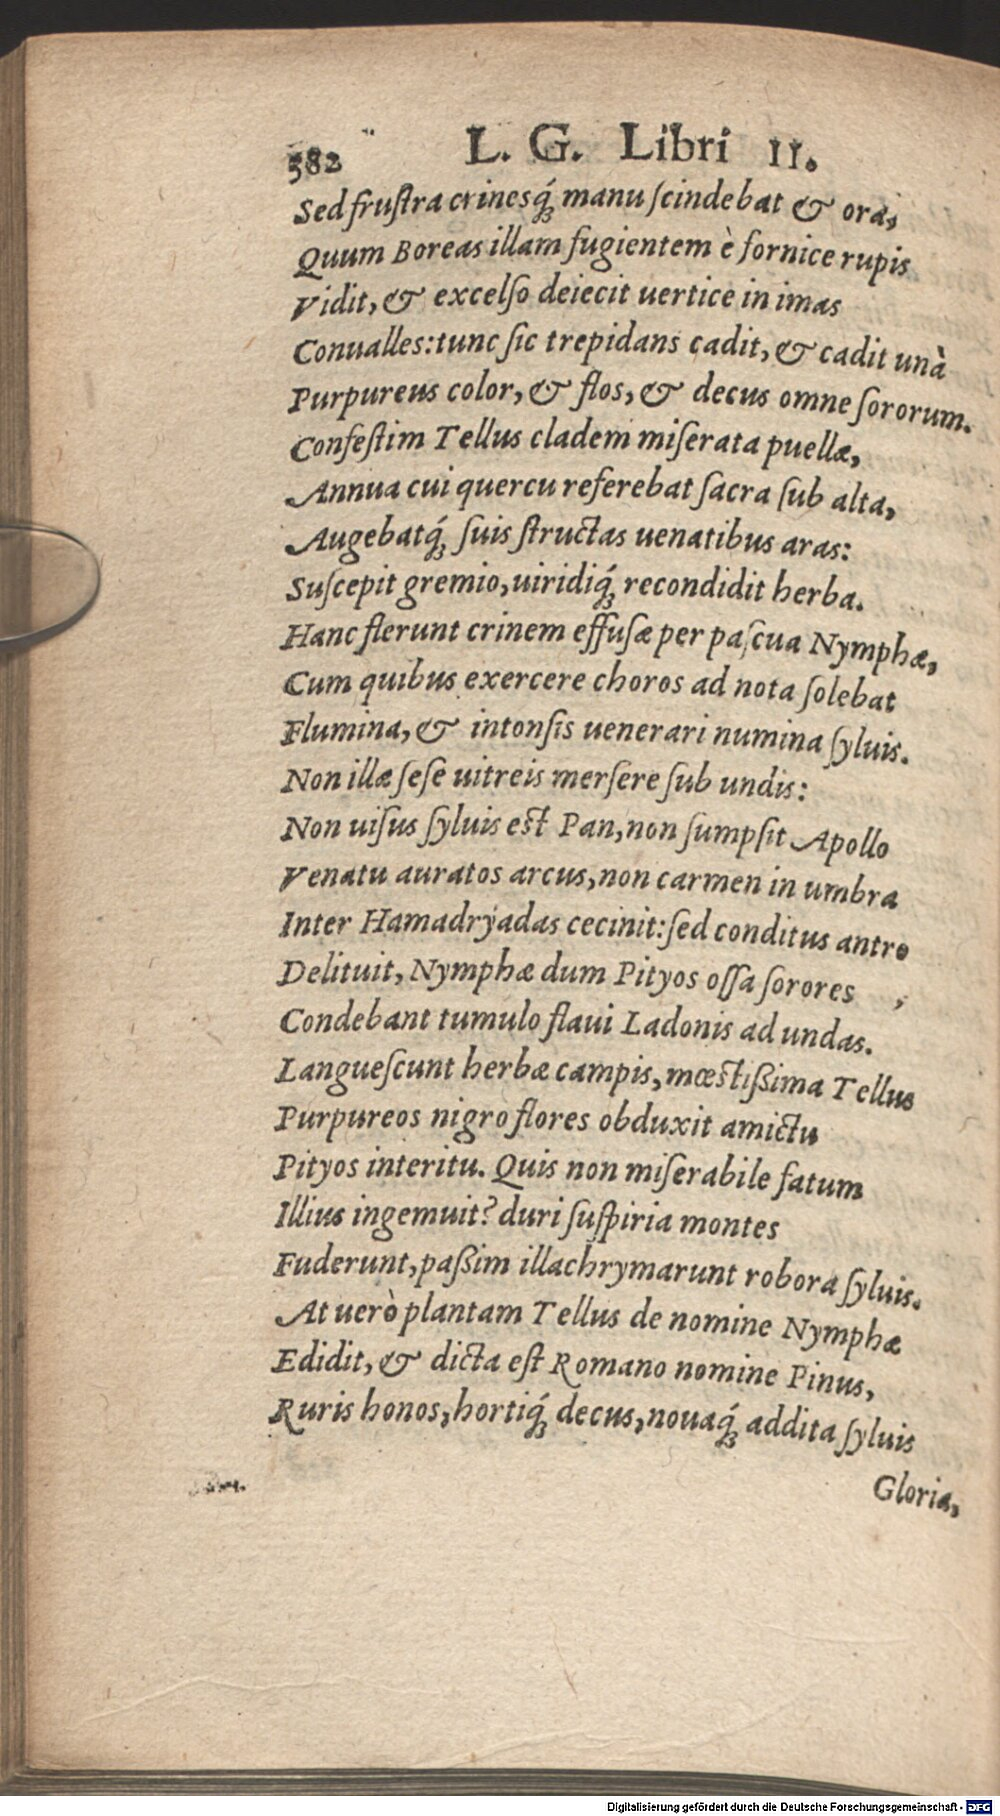 382 L. G. Libri II.
Sed fruſtra crinesq́; manu ſcindebat & ora,
Quum Boreas illam fugientem è fornice rupis
Vidit, & excelſo deiecit uertice in imas
Conualles: tunc ſic trepidans cadit, & cadit unà
Purpureus color, & flos, & decus omne ſororum.
Confeſtim Tellus cladem miſerata puellæ,
Annua cui quercu referebat ſacra ſub alta,
Augebatq́; ſuis ſtructas uenatibus aras:
Suſcepit gremio, uiridiq́; recondidit herba.
Hanc flerunt crinem effuſæ per paſcua Nymphæ,
Cum quibus exercere choros ad nota ſolebat
Flumina, & intonſis uenerari numina ſyluis.
Non illæ ſeſe uitreis merſere ſub undis:
Non uiſus ſyluis eſt Pan, non ſumpſit Apollo
Venatu auratos arcus, non carmen in umbra
Inter Hamadryadas cecinit: ſed conditus antro
Delituit, Nymphæ dum Pityos oſſa ſorores ,
Condebant tumulo flaui Ladonis ad undas.
Langueſcunt herbæ campis, mœſtißima Tellus
Purpureos nigro flores obduxit amictu
Pityos interitu. Quis non miſerabile fatum
Illius ingemuit? duri ſuſpiria montes
Fuderunt, paßim illachrymarunt robora ſyluis.
At uerò plantam Tellus de nomine Nymphæ
Edidit, & dicta eſt Romano nomine Pinus,
Ruris honos, hortiq́; decus, nouaq́; addita ſyluis
Gloria,
Digitalisierung gefördert durch die Deutsche Forschungsgemeinschaft - DFG